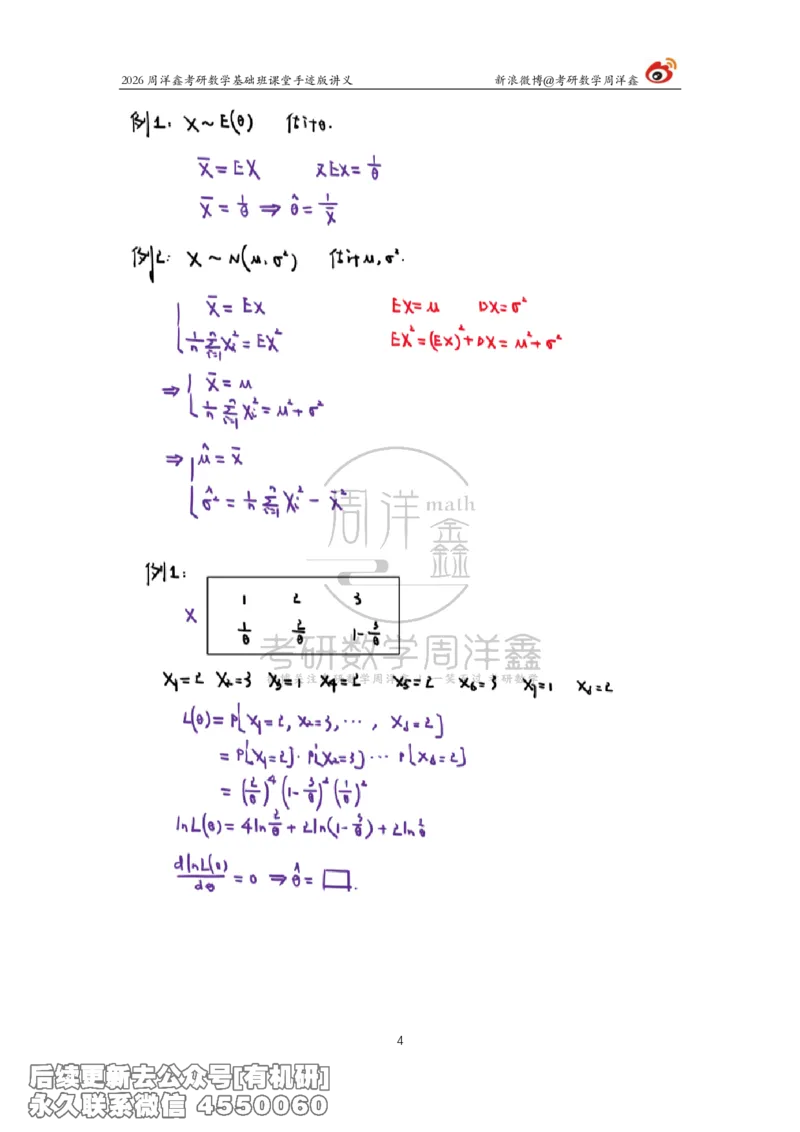 2026 周洋鑫考研数学基础班课堂手迹版讲义 新浪微博@考研数学周洋鑫
例1: X ~ E(θ) 估计θ.
X̄ = EX 又EX = 1/θ
X̄ = 1/θ ⇒ θ̂ = 1/X̄
例2: X ~ N(μ, σ²) 估计μ, σ².
X̄ = EX EX = μ DX = σ²
1/n Σᵢ₌₁ⁿ Xᵢ² = EX² EX² = (EX)² + DX = μ² + σ²
⇒ { X̄ = μ
1/n Σᵢ₌₁ⁿ Xᵢ² = μ² + σ²
⇒ { μ̂ = X̄
σ̂² = 1/n Σᵢ₌₁ⁿ Xᵢ² − X̄²
周洋鑫 math
例1:
1 2 3
X
1/θ 2/θ 1−3/θ
考研数学周洋鑫
X₁=2 X₂=3 X₃=1 X₄=2 X₅=2 X₆=3 X₇=1 X₈=2
L(θ) = P{X₁=2, X₂=3, ⋯, X₈=2}
= P{X₁=2}·P{X₂=3}⋯P{X₈=2}
= (2/θ)⁴(1−3/θ)²(1/θ)²
lnL(θ) = 4ln2/θ + 2ln(1−3/θ) + 2ln1/θ
dlnL(θ)/dθ = 0 ⇒ θ̂ = □.
4
后续更新去公众号[有机研]
永久联系微信 4550060